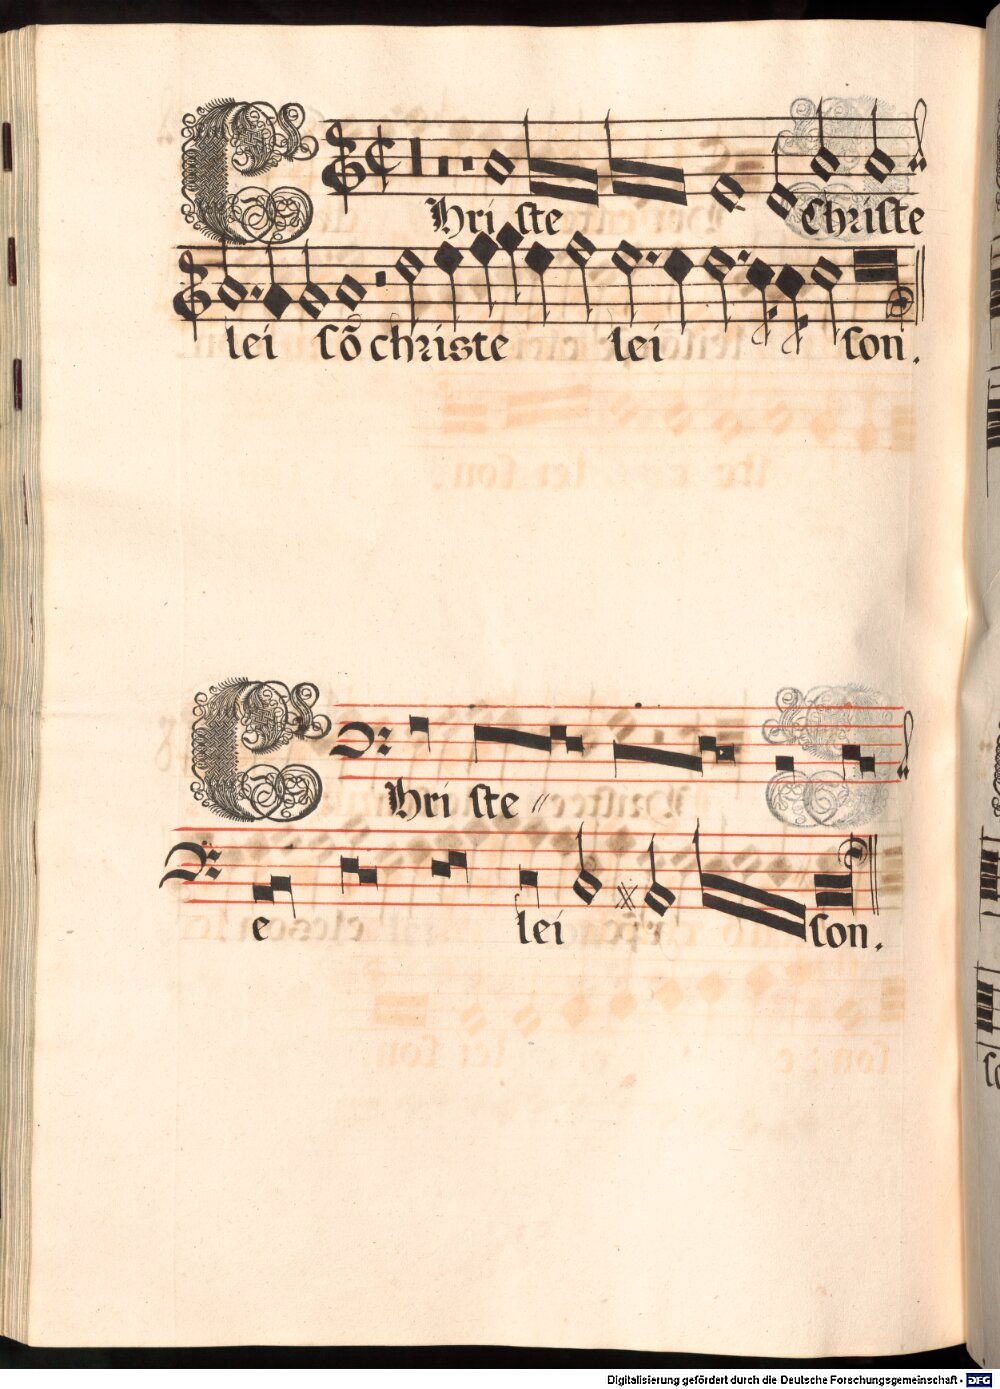 Christe Christe
lei sō christe lei son.
Christe //
e lei son.
Digitalisierung gefördert durch die Deutsche Forschungsgemeinschaft - DFG